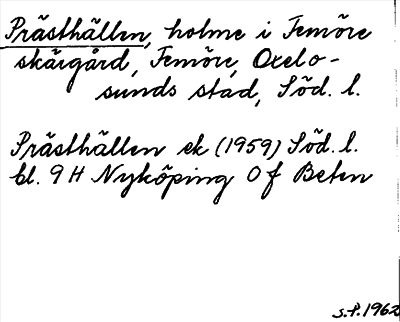 Prästhällen, holme i Femöre
skärgård, Femöre, Oxelo-
sunds stad, Söd. l.
Prästhällen ek (1959) Söd. l.
bl. 9 H Nyköping 0 f Beten
s.f. 1962